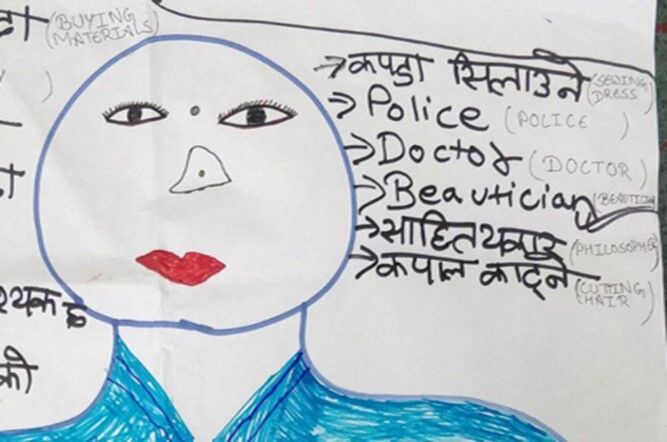 (BUYING
MATERIALS)
)
→ कपडा सिलाउने (SEWING
DRESS)
→ Police (POLICE )
→ Doctor (DOCTOR)
→ Beautician (BEAUTICIAN
→ साहित्यकार (PHILOSOPHER)
→ कपाल काट्ने (CUTTING
HAIR)